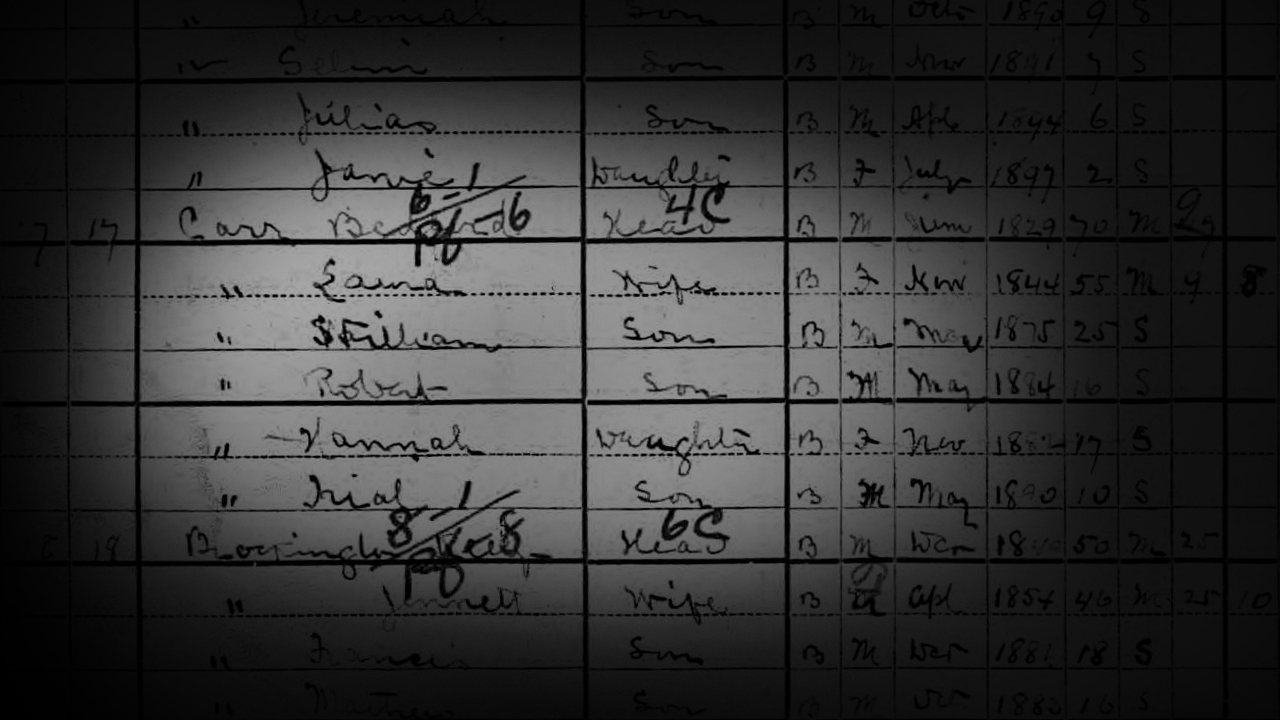 " Jeremiah Son B M Oct 1890 9 S
" Son B M Nov 1891 7 S
" Julias Son B M Apl 1894 6 S
" Janie Daughter B F July 1897 2 S
6-1/6
7 17 Carr Head 4C B M 1829 70 M
" Laura Wife B F Nov 1844 55 M 9 8
" William Son B M May 1875 25 S
" Robert Son B M May 1884 16 S
" Hannah Daughter B F Nov 1882 17 S
" Son B M May 1890 10 S
8-1/8
18 Head 6C B M Dec 50 M 25
" Jennett Wife B F Apl 1854 46 M 25 10
" Francis Son B M Dec 1881 18 S
" Son B M Oct 1883 16 S